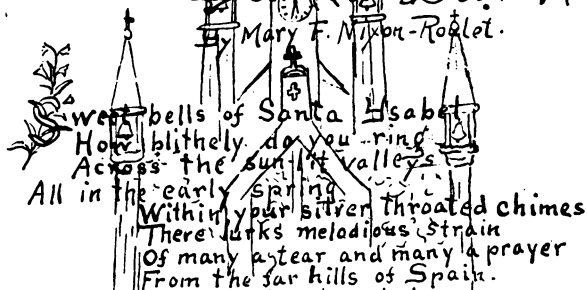 By Mary F. Nixon-Roulet.
Sweet bells of Santa Ysabel
How blithely do you ring
Across the sun-lit valleys
All in the early spring
Within your silver throated chimes
There lurks melodious strain
Of many a tear and many a prayer
From the far hills of Spain.